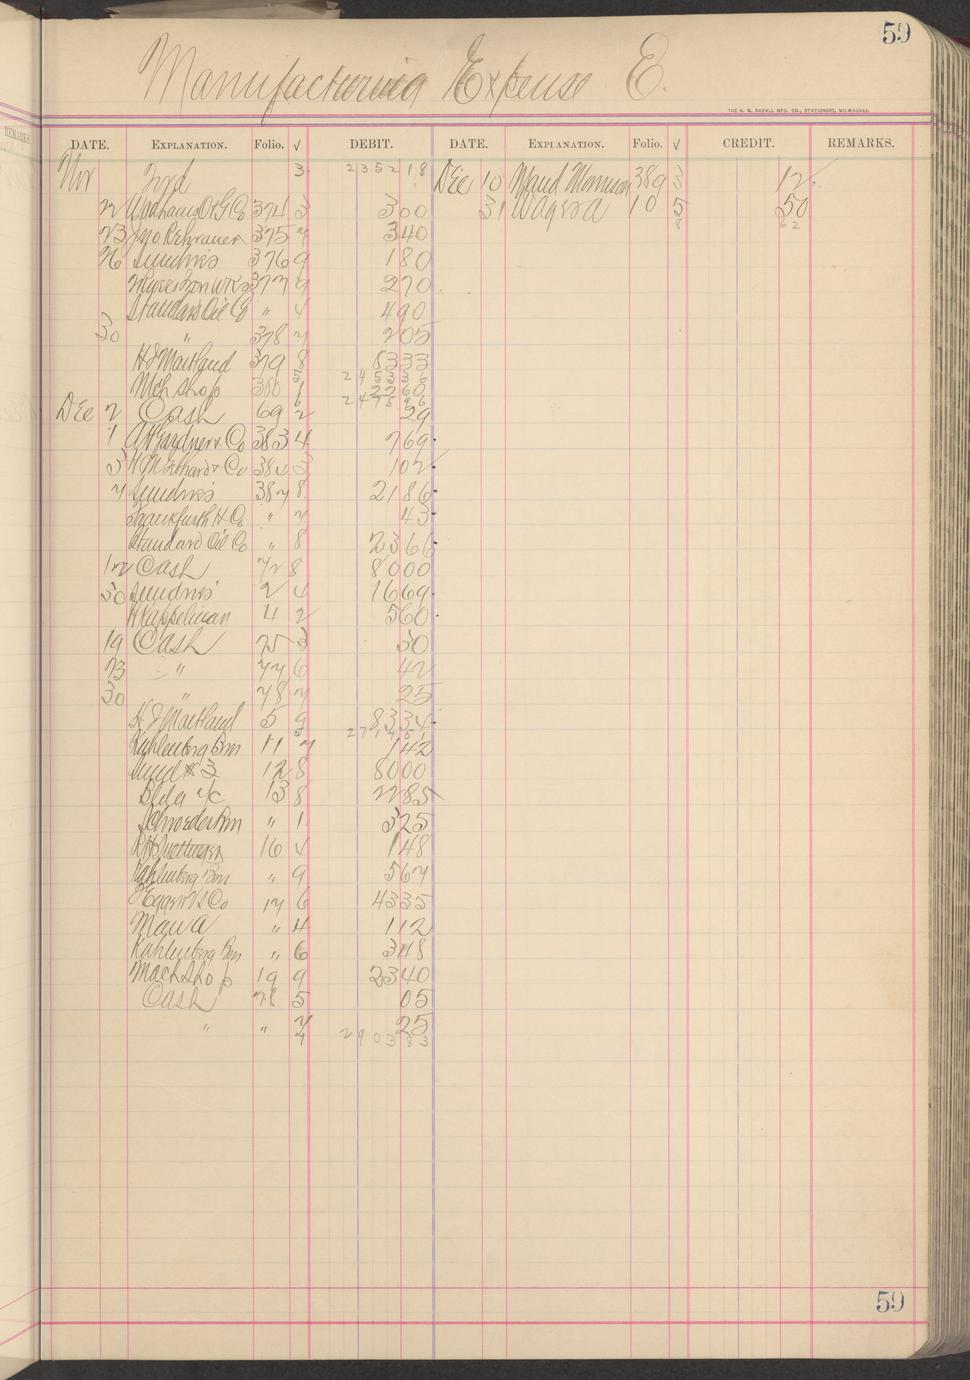 59
Manufacturing Expense E.
THE H. H. RAZALL MFG. CO., STATIONERS, MILWAUKEE.
REMARKS
DATE. EXPLANATION. Folio. √ DEBIT. DATE. EXPLANATION. Folio. √ CREDIT. REMARKS.
Nov Ford 3 2352 18 Dec 10 Maud Morrison 389 3 12
22 374 3 3 00 31 Wages a 10 5 50
62
23 Jno Rehrauer 375 7 3 40
26 Sundries 376 9 1 80
377 9 2 70
Standard Oil Co " 4 4 90
30 " 378 7 2 05
H J Maitland 379 8 83 33
5 2453 36
Mch Shop 380 1 22 60
6 2475 96
Dec 2 Cash 69 2 29
1 A H Gardner & Co 383 4 7 69
3 & Co 384 3 1 02
7 Sundries 387 8 21 86
Frankfurth H Co " 7 43
Standard Oil Co " 8 23 66
12 Cash 72 8 80 00
30 Sundries 2 4 16 69
H Kappelman 4 2 5 60
19 Cash 75 3 30
23 " 77 6 42
30 " 78 7 25
H J Maitland 5 9 83 34
Kahlenberg Bros 11 7 1 42
Sund # 3 12 8 80 00
Bldg a/c 13 8 22 85
Schroeder Bros " 1 3 25
16 4 1 48
Kahlenberg Bros " 9 5 67
17 6 43 35
Man a " 4 1 12
Kahlenberg Bros " 6 3 48
Mach Shop 19 9 23 40
Cash 78 5 05
" " 7 25
7 2903 83
59